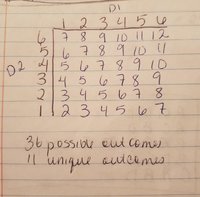 D1
1 2 3 4 5 6
6 7 8 9 10 11 12
5 6 7 8 9 10 11
D2 4 5 6 7 8 9 10
3 4 5 6 7 8 9
2 3 4 5 6 7 8
1 2 3 4 5 6 7
36 possible outcomes
11 unique outcomes